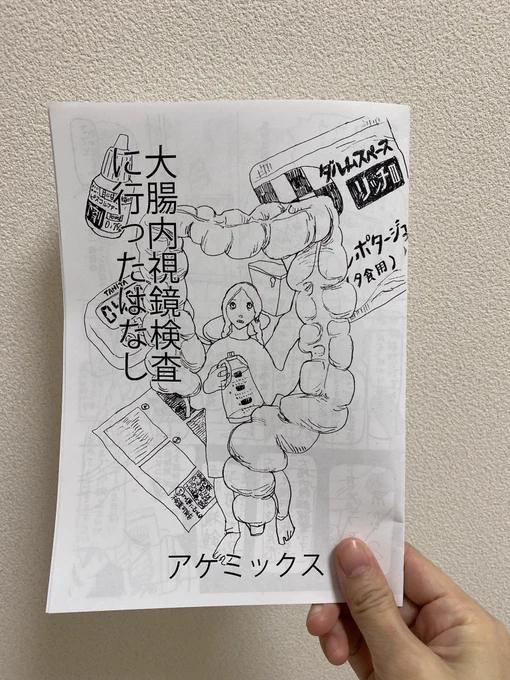 大腸内視鏡検査
に行ったはなし
ダルムスペース
リッチIII
ポタージュ
夕食用)
TANITA
0.75
アケミックス